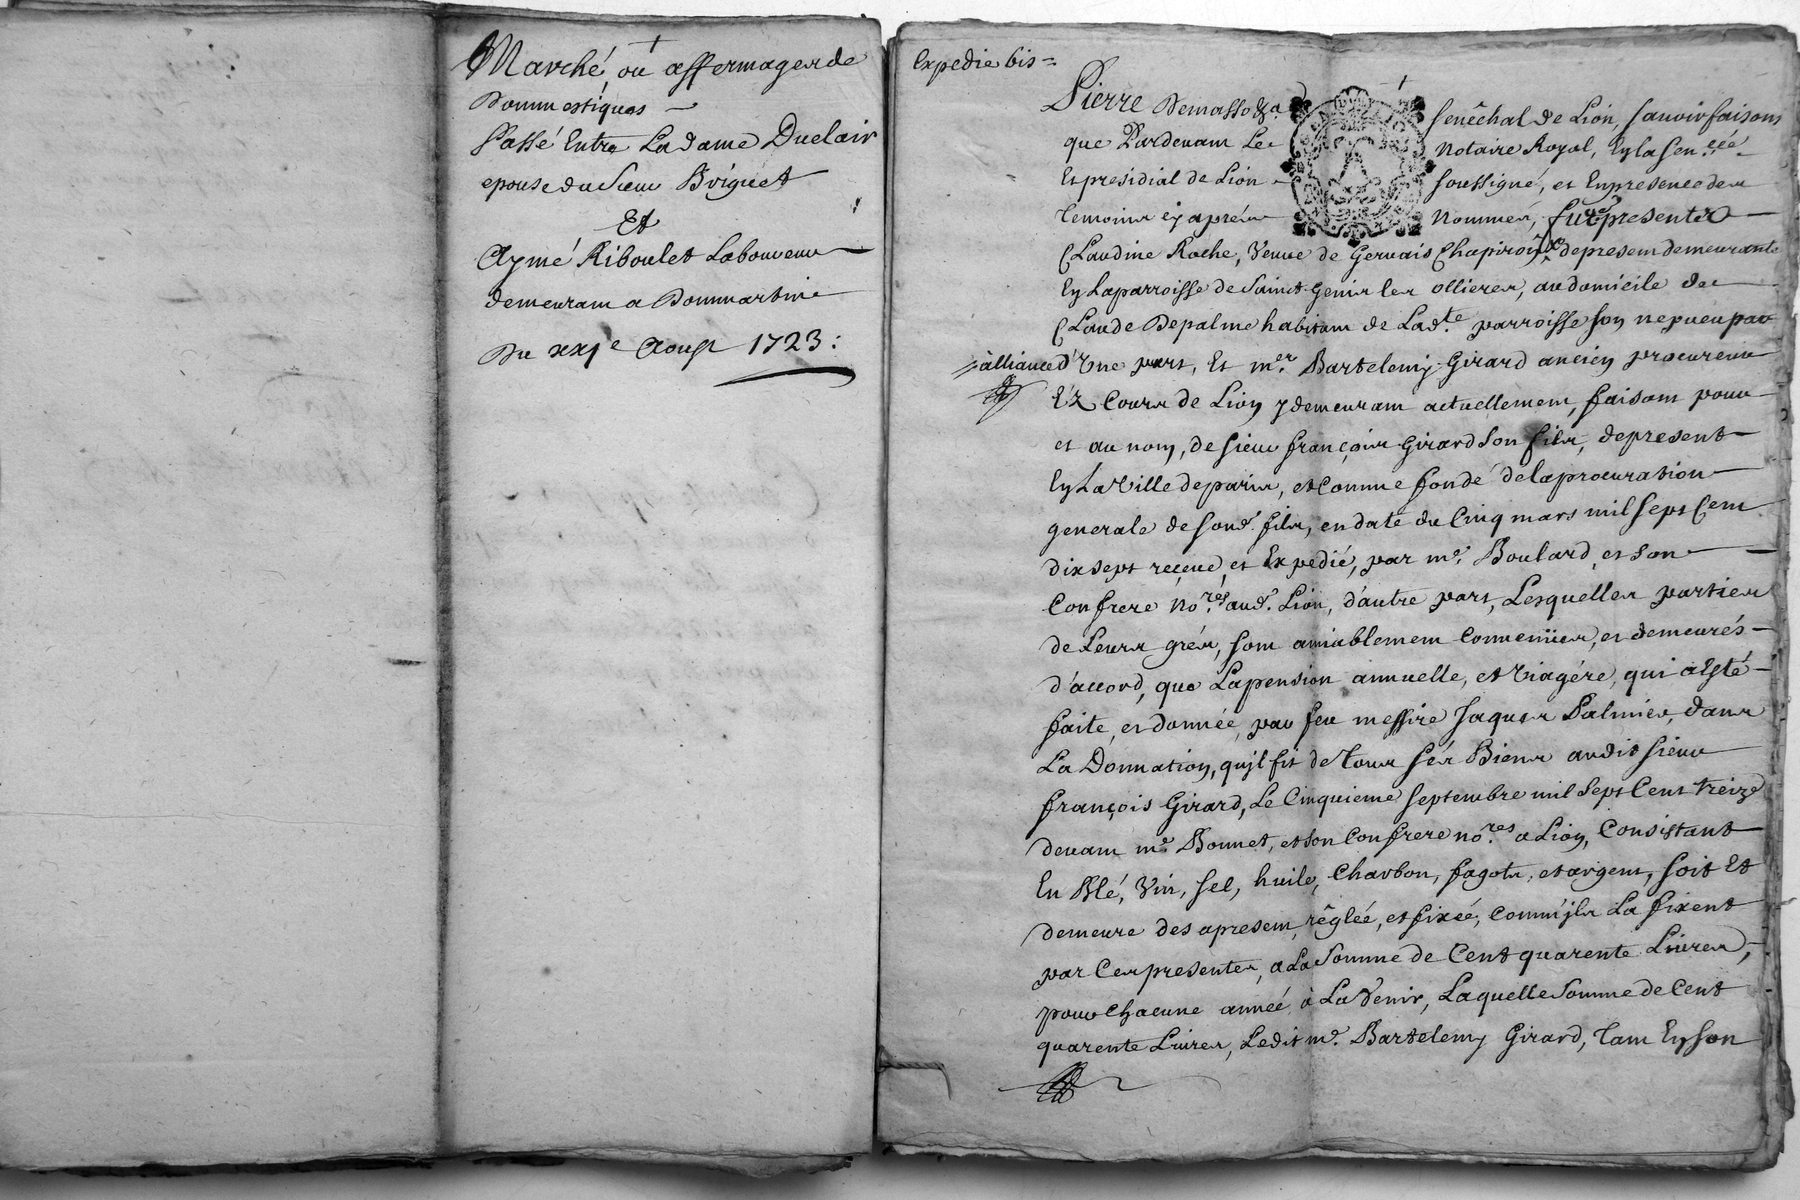 Marché, ou affermage de
Dommestiques
Passé Entre La dame Duclair
epouse du Sieur Briguet
Et
Aymé Riboulet Laboureur
demeurant a Dommartin
Du xxje Aoust 1723:
Expedie bis=
Pierre Demasso &a. Senêchal de Lion, sçavoir faisons
que Pardevant Le Notaire Royal, En la Sen.ceé
Et presidial de Lion soussigné, et En presence des
Temoins cy aprés Nommés, fut presente
Claudine Roche, Veuve de Gervais Chapiron, de present demeurante
En La parroisse de Saint Genis les ollieres, au domicile de
Claude Depalme habitant de Lad.te parroisse son nepveu par
alliance d'Une part, Et m.er Bartelemy Girard ancien procureur
Ez Cours de Lion y demeurant actuellement, faisant pour
et au nom, de sieur françois Girard son fils, de present
En La Ville de paris, et comme fondé de la procuration
generale de sond. fils, en date du Cinq mars mil sept Cent
dix sept reçeue, et Expedié, par me. Boulard, et son
Confrere no.res aud. Lion, d'autre part, Lesquelles parties
de Leurs grés, sont amiablement Convenües, et demeurés
d'accord, que La pension annuelle, et Viagére, qui a Esté
faite, et donnée, par feu messire Jaques Palmier, dans
La Donnation, qu'jl fit de Tous sés Biens audit sieur
françois Girard, Le Cinquieme septembre mil sept Cent Treize
devant me. Bonnet, et son Confrere no.res a Lion, Consistant
En Blé, Vin, sel, huile, Charbon, fagots, et argent, soit Et
demeure des apresent, rêglée, et fixéé, comm'jls La fixent
par Ces presentes, a La Somme de Cent quarente Livres,
pour Chacune année à La Venir, Laquelle Somme de Cent
quarente Livres, Ledit me. Bartelemy Girard, Tant En son